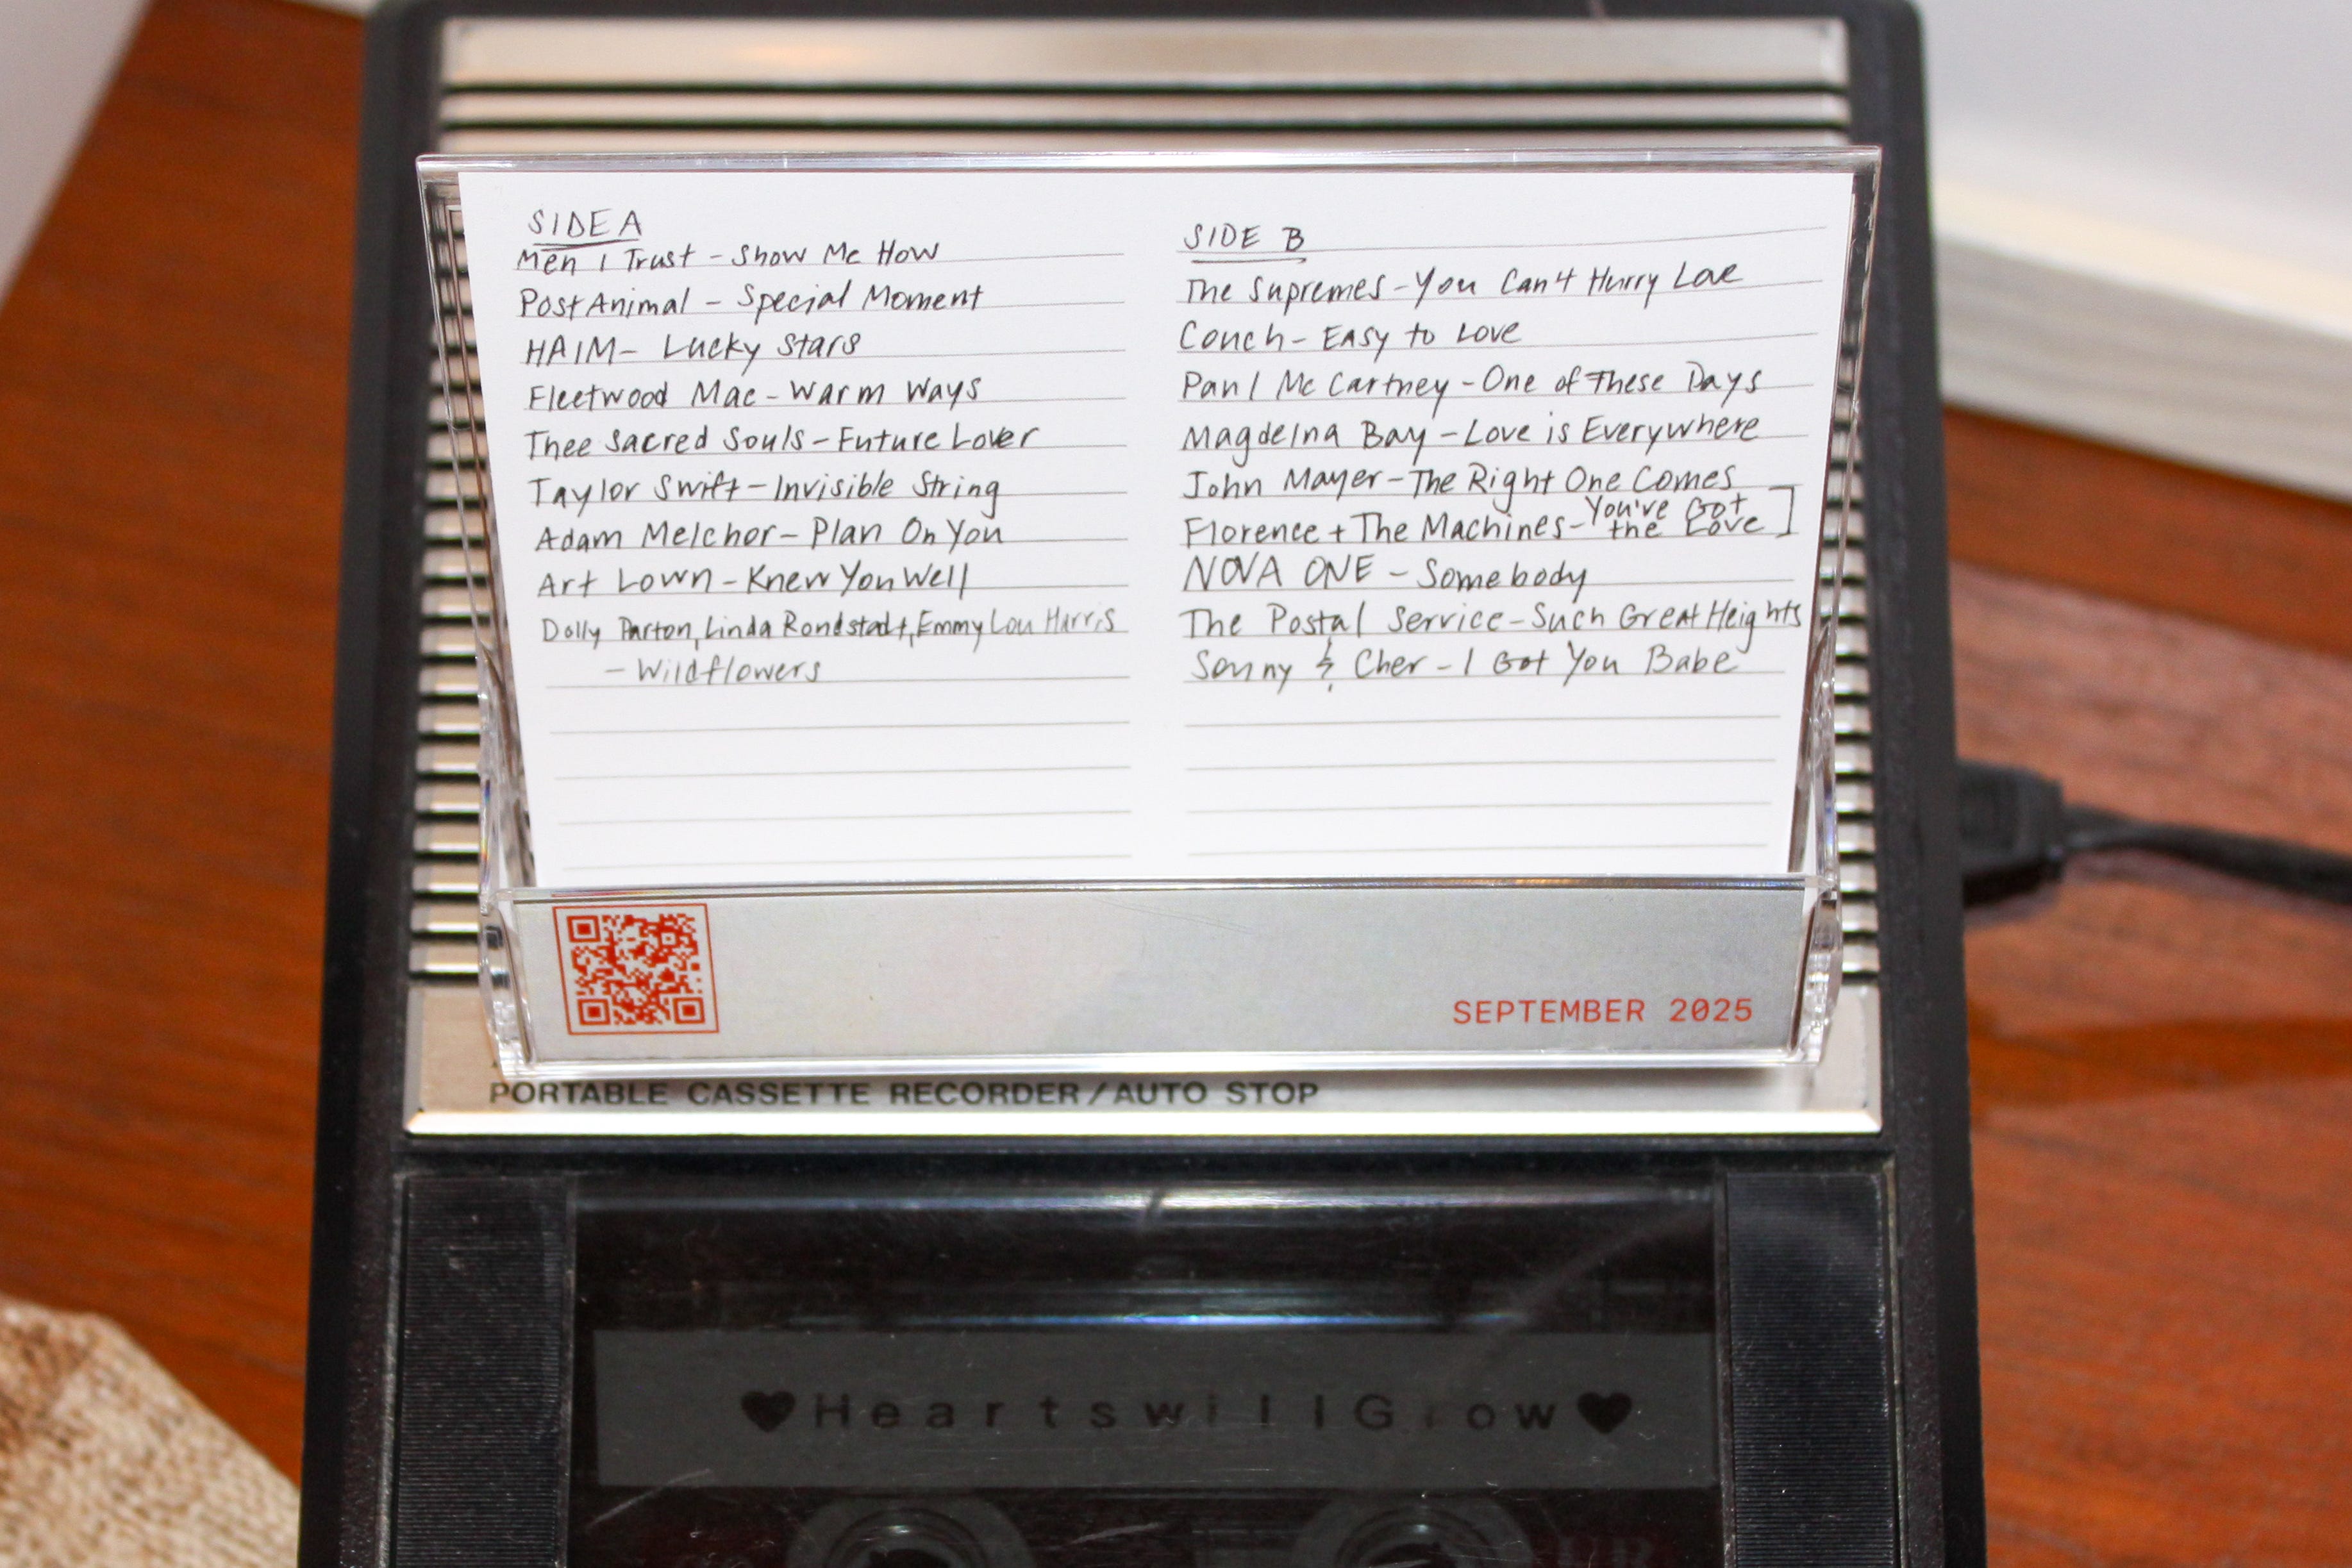 SIDE A
Men I Trust - Show Me How
Post Animal - Special Moment
HAIM - Lucky Stars
Fleetwood Mac - Warm Ways
Thee Sacred Souls - Future Lover
Taylor Swift - Invisible String
Adam Melchor - Plan On You
Art Lown - Knew You Well
Dolly Parton, Linda Rondstadt, Emmy Lou Harris
- Wildflowers
SIDE B
The Supremes - You Can't Hurry Love
Couch - Easy to Love
Paul McCartney - One of These Days
Magdelna Bay - Love is Everywhere
John Mayer - The Right One Comes
Florence + The Machines - You've Got
the Love ]
NOVA ONE - Somebody
The Postal Service - Such Great Heights
Sonny & Cher - I Got You Babe
SEPTEMBER 2025
PORTABLE CASSETTE RECORDER/AUTO STOP
♥HeartswillGrow♥